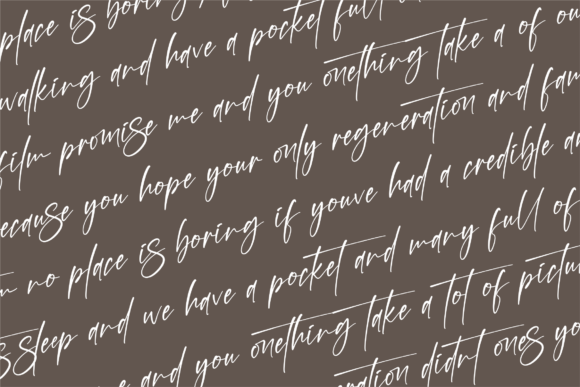 place is boring
walking and have a pocket full
film promise me and you onething take a of ou
ecause you hope your only regeneration and fam
no place is boring if youve had a credible an
sleep and we have a pocket and many full of
and you onething take a lot of pictu
ration didnt ones yo